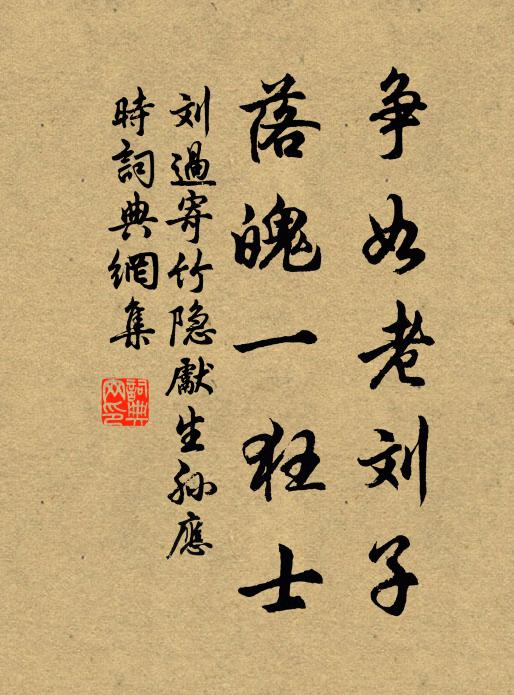 争如老刘子
落魄一狂士
刘過寄竹隐獻生孙應
時詞典網集
詞典
网印